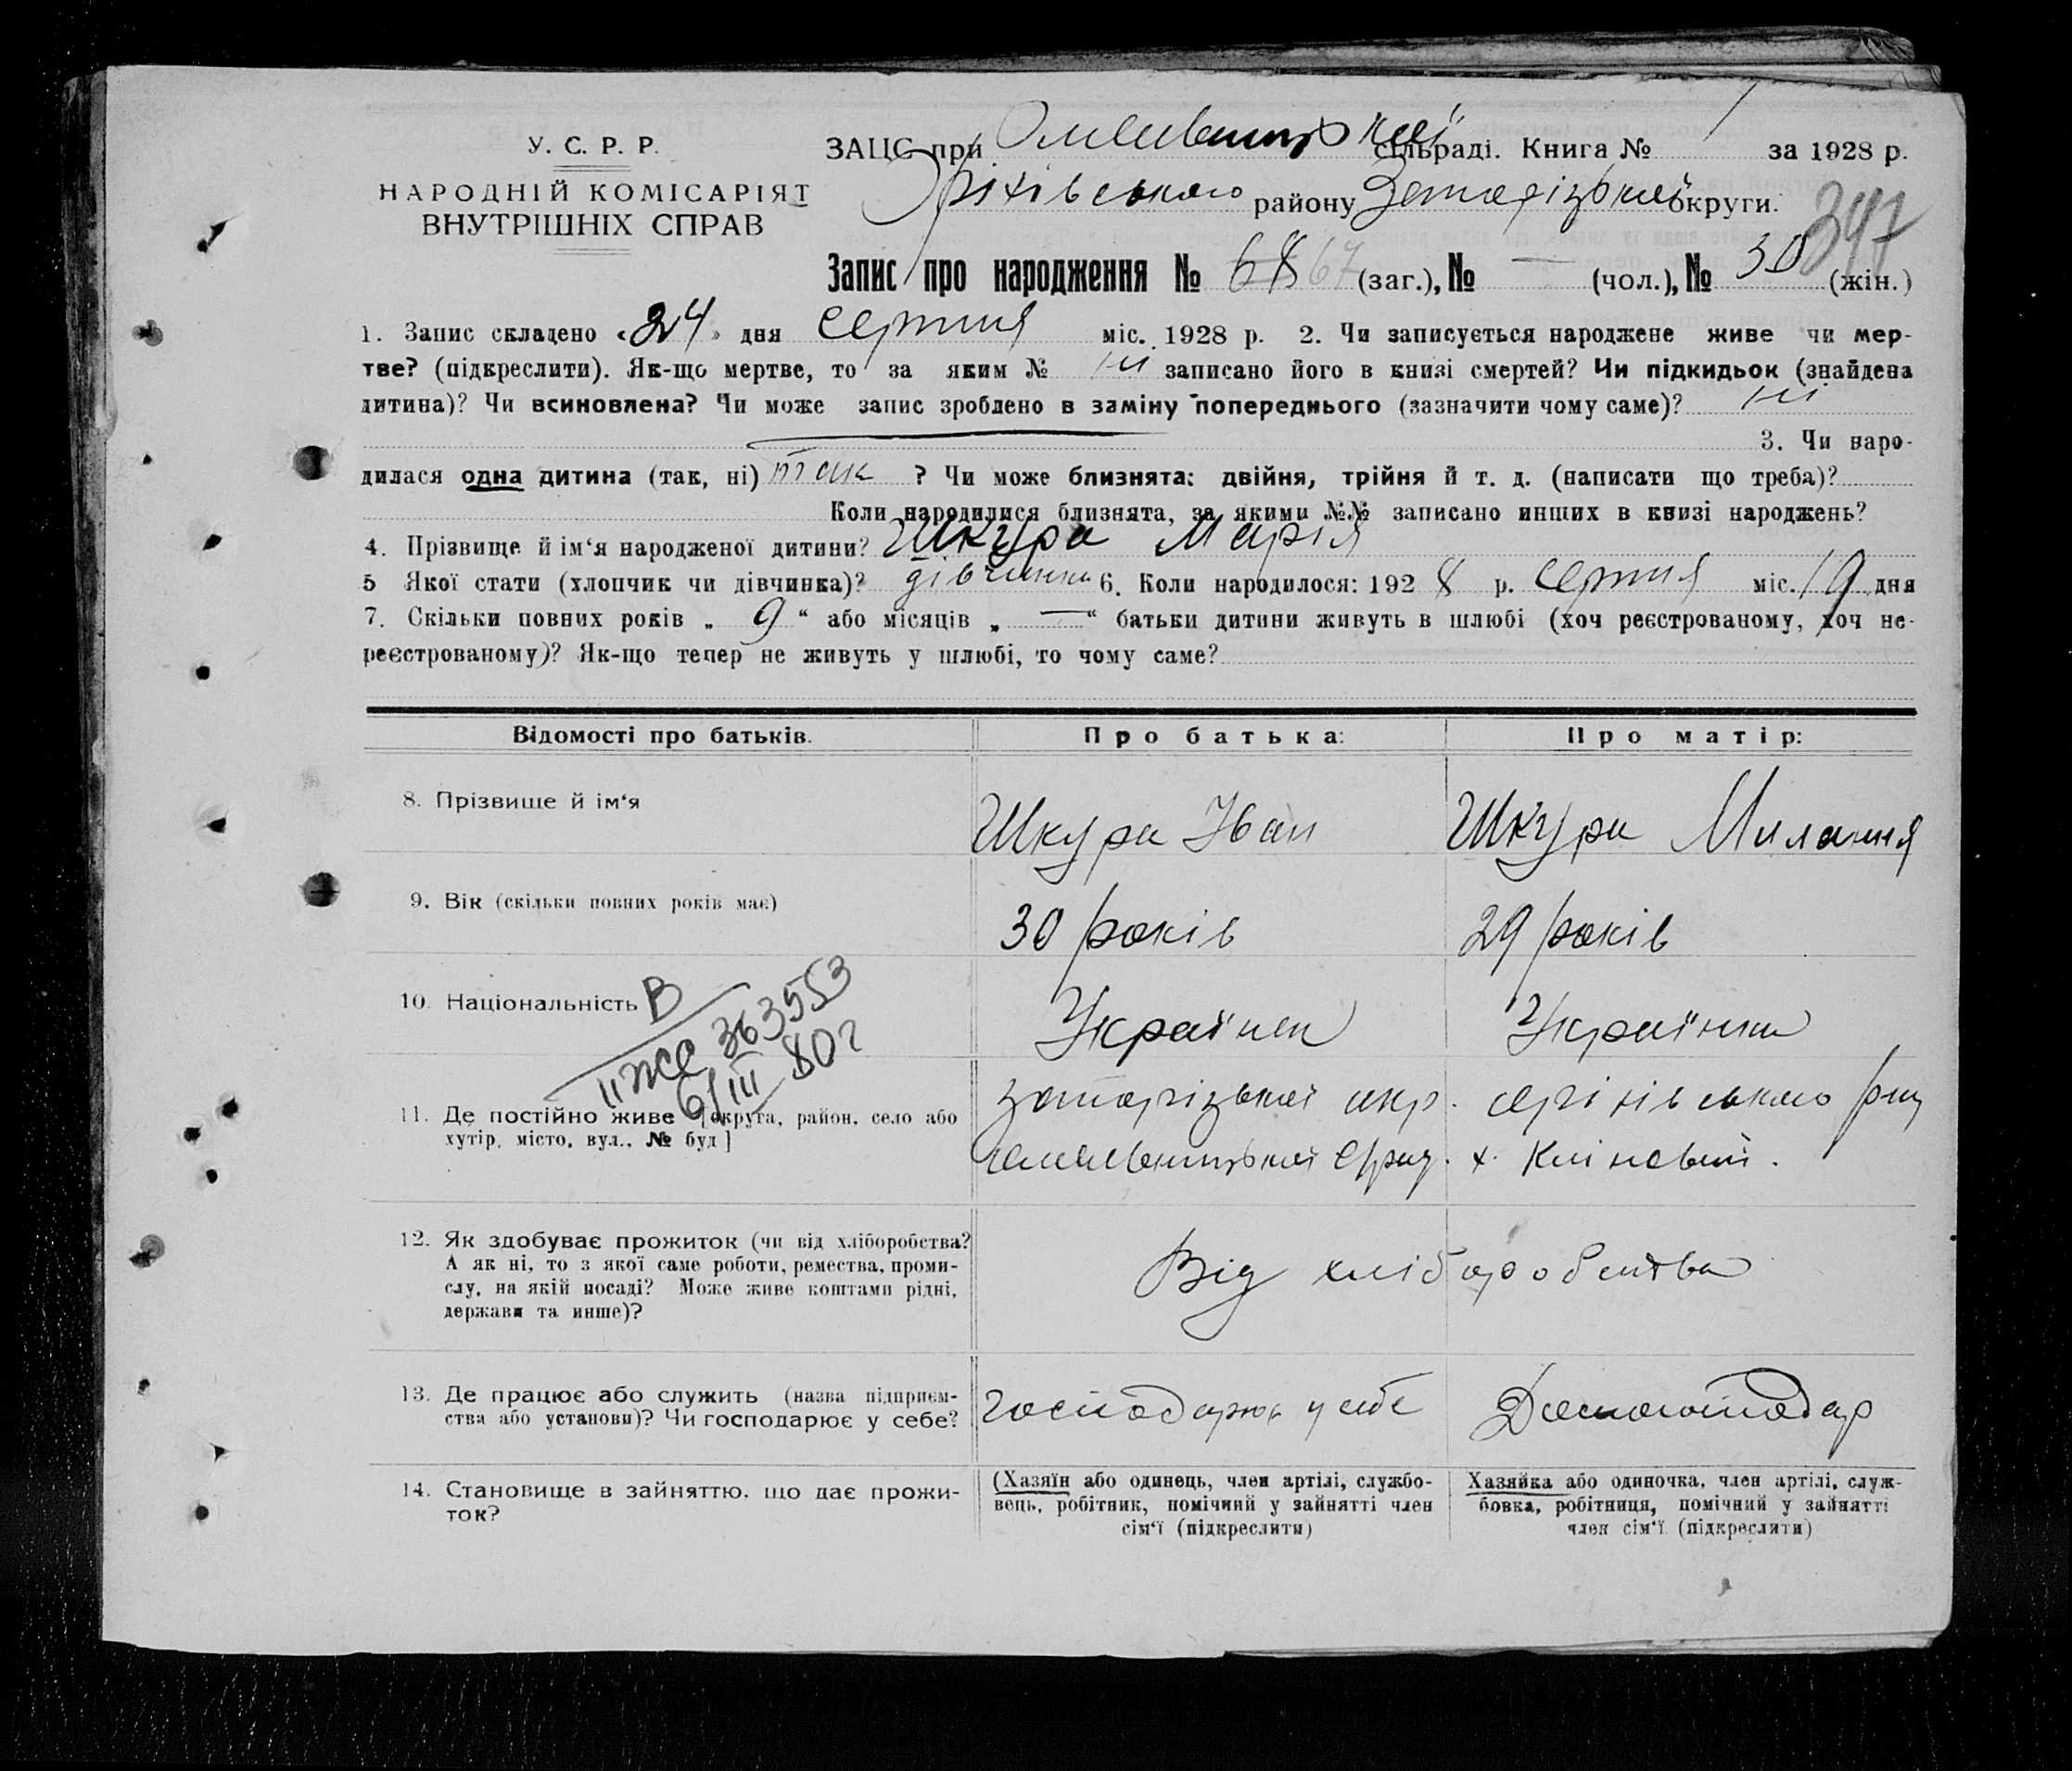 У. С. Р. Р.
НАРОДНІЙ КОМІСАРІЯТ
ВНУТРІШНІХ СПРАВ
ЗАЦС при сільраді. Книга № 1 за 1928 р.
Оріхівського району Запорізької округи.
347
Запис про народження № 68 67 (заг.), № — (чол.), № 30 (жін.)
1. Запис складено «24» дня серпня міс. 1928 р. 2. Чи записується народжене живе чи мер-
тве? (підкреслити). Як-що мертве, то за яким № ні записано його в книзі смертей? Чи підкидьок (знайдена
дитина)? Чи всиновлена? Чи може запис зроблено в заміну попереднього (зазначити чому саме)? ні
3. Чи наро-
дилася одна дитина (так, ні) так ? Чи може близнята: двійня, трійня й т. д. (написати що треба)?
Коли народилися близнята, за якими №№ записано инших в книзі народжень?
4. Прізвище й ім'я народженої дитини? Шкура Марія
5 Якої стати (хлопчик чи дівчинка)? дівчинка 6. Коли народилося: 1928 р. серпня міс. 19 дня
7. Скільки повних років „ 9 “ або місяців „ — “ батьки дитини живуть в шлюбі (хоч реєстрованому, хоч не-
реєстрованому)? Як-що тепер не живуть у шлюбі, то чому саме?
Відомості про батьків. Про батька: Про матір:
8. Прізвище й ім'я Шкура Іван Шкура Миланія
9. Вік (скільки повних років має) 30 років 29 років
10. Національність Українец Українка
В
II ЖС 363953
6/III 80г
11. Де постійно живе [округа, район, село або
хутір, місто, вул., № буд]
запорізької окр. оріхівського рну
х.
12. Як здобуває прожиток (чи від хліборобства?
А як ні, то з якої саме роботи, ремества, проми-
слу, на якій посаді? Може живе коштами рідні,
держави та инше)?
Від хліборобства
13. Де працює або служить (назва підприєм-
ства або установи)? Чи господарює у себе?
господарює у себе Домогосподар
14. Становище в зайняттю, що дає прожи-
ток?
(Хазяїн або одинець, член артілі, службо-
вець, робітник, помічний у зайнятті член
сім'ї (підкреслити)
Хазяйка або одиночка, член артілі, служ-
бовка, робітниця, помічний у зайнятті
член сім'ї (підкреслити)